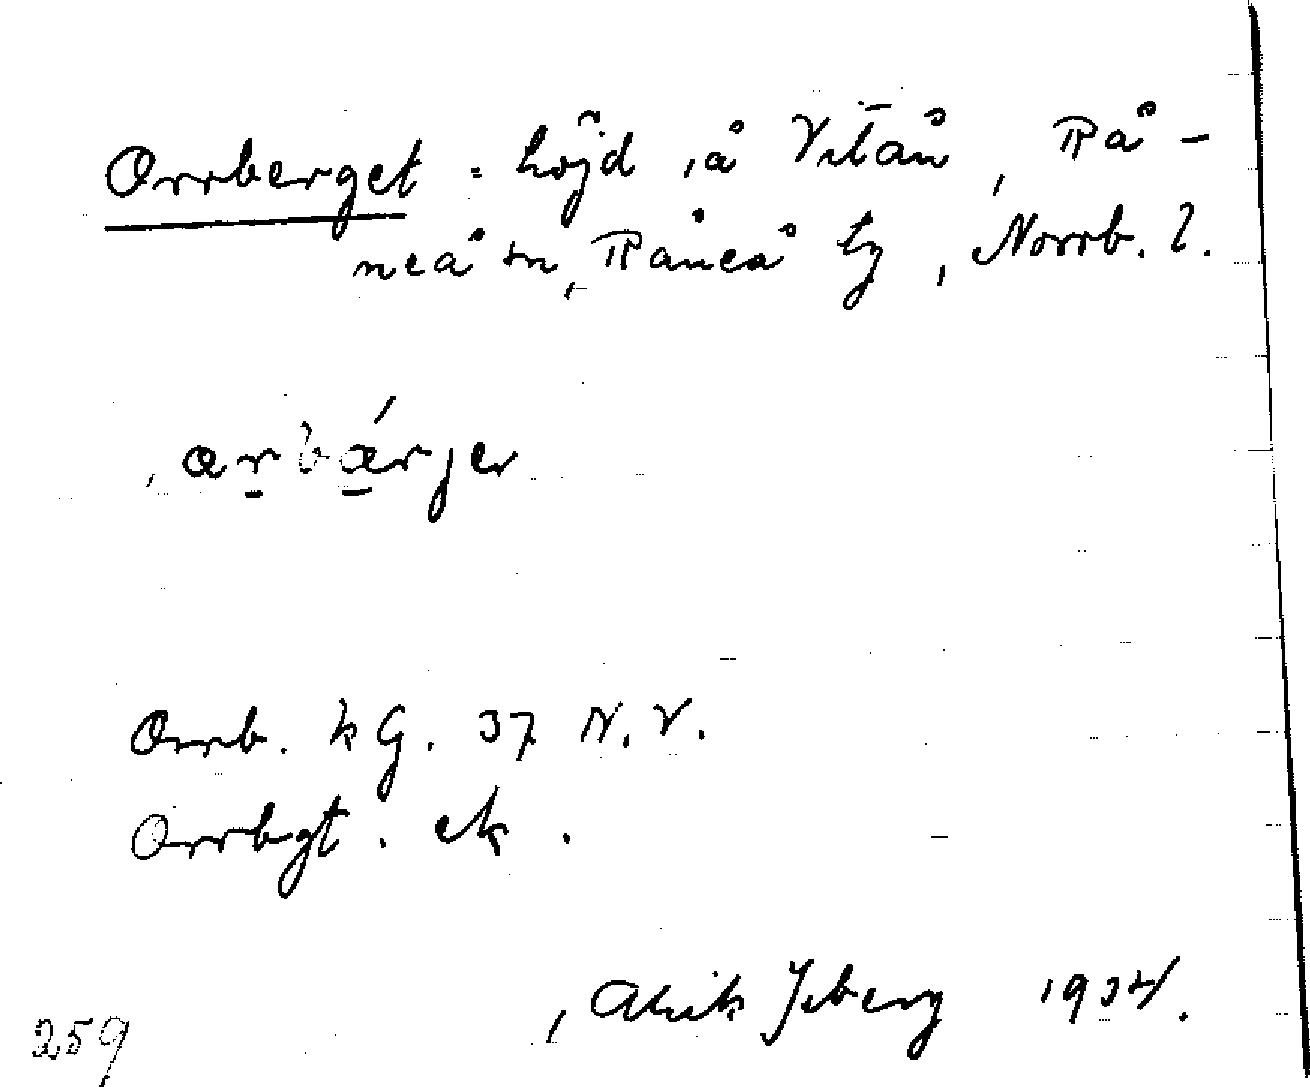 Orrberget = höjd å Vitån, Rå-
neå sn, Råneå tg, Norrb. l.
ar̲bá̲rjer
Orrb. kG. 37 N.V.
Orrbgt. ek.
Alrik Isberg 1934.
259